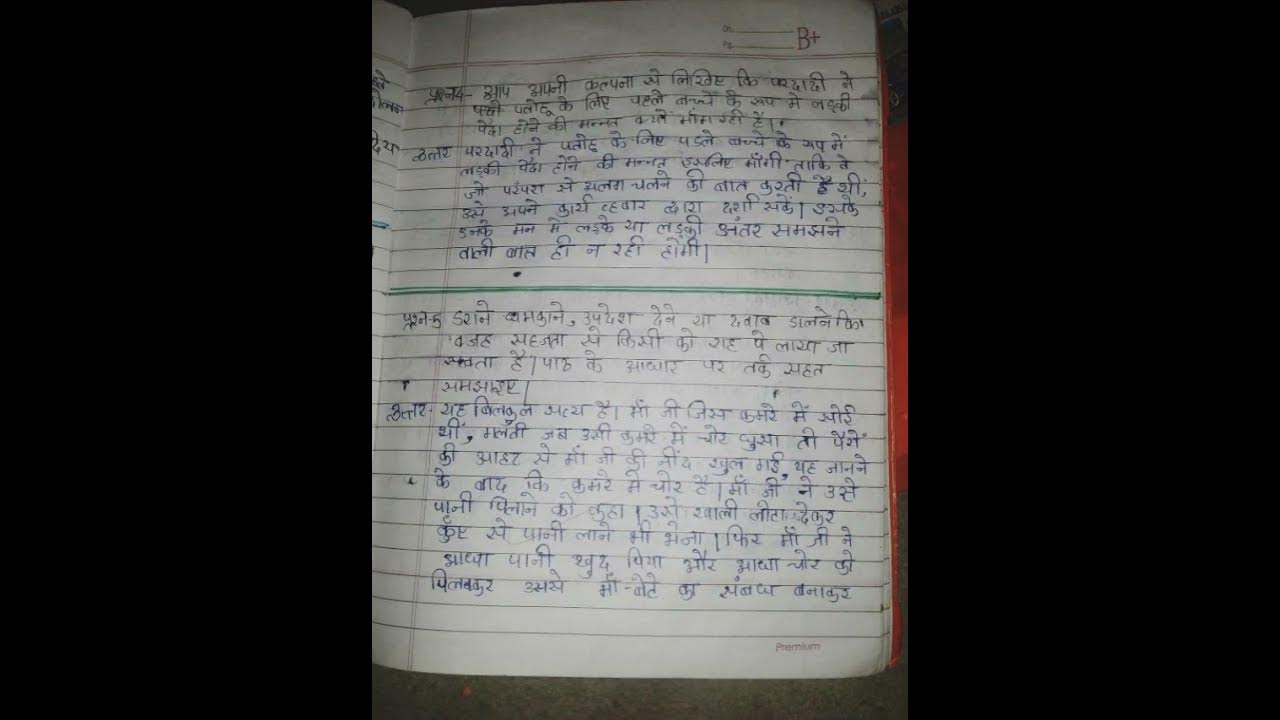 B+
प्रश्न4- आप अपनी कल्पना से लिखिए कि परदादी ने
पतोहू के लिए पहले बच्चे के रूप मे लड़की
पैदा होने की मन्नत क्यों माँग रही हैं।
उत्तर परदादी ने पतोहू के लिए पहले बच्चे के रूप में
लड़की पैदा होने की मन्नत इसलिए माँगी ताकि वे
जो परंपरा से अलग चलने की बात करती है थीं,
उसे अपने कार्य व्हवार द्वारा दर्शा सकें। इसके
उनके मन मे लड़के या लड़की अंतर समझने
वाली बात ही न रही होगी।
प्रश्न-5 डराने धमकाने, उपदेश देने या दवाब डालने कि
वजह सहजता से किसी को राह पे लाया जा
सकता है। पाठ के आधार पर तर्क सहत
समझाइए।
उत्तर- यह बिलकुल सत्य है। माँ जी जिस कमरे में सोई
थीं, जब उसी कमरे में चोर घुसा तो पैरों
की आहट से माँ जी की नींद खुल गई, यह जानने
के बाद कि कमरे मे चोर है। माँ जी ने उसे
पानी पिलाने को कहा। उसे खाली लोटा देकर
कुँए से पानी लाने भी भेजा। फिर माँ जी ने
आधा पानी खुद पिया और आधा चोर को
पिलाकर उससे माँ-बेटे का संबध बनाकर
Premium